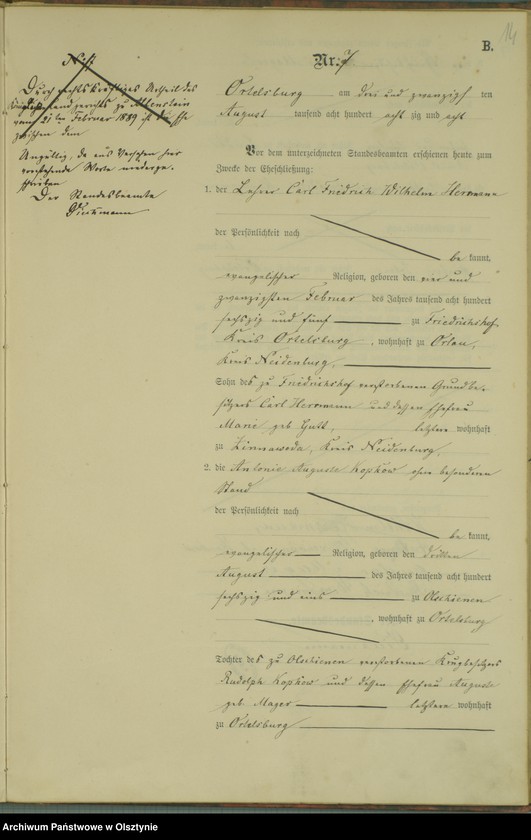 14
B.
Nr. 7
Ortelsburg am drei und zwanzigsten
August tausend acht hundert acht zig und acht
Vor dem unterzeichneten Standesbeamten erschienen heute zum
Zwecke der Eheschließung:
1. der Lehrer Carl Friedrich Wilhelm Herrmann
der Persönlichkeit nach
be kannt,
evangelischer Religion, geboren den vier und
zwanzigsten Februar des Jahres tausend acht hundert
sechszig und fünf zu Friedrichshof,
Kreis Ortelsburg, wohnhaft zu Orlau,
Kreis Neidenburg,
Sohn des zu Friedrichshof verstorbenen Grundbe-
sitzers Carl Herrmann und dessen Ehefrau
Marie geb. letztere wohnhaft
zu Kreis Neidenburg.
2. die Antonie Auguste Kopkow ohne besonderen
Stand
der Persönlichkeit nach
be kannt,
evangelischer Religion, geboren den dritten
August des Jahres tausend acht hundert
sechszig und eins zu Olschienen
, wohnhaft zu Ortelsburg
Tochter des zu Olschienen verstorbenen Krugbesitzers
Rudolph Kopkow und dessen Ehefrau Auguste
geb. Mayer letztere wohnhaft
zu Ortelsburg
Durch rechtskräftiges Urtheil des
Königlichen Landgerichts zu Allenstein
vom 21ten Februar 1889 ist die Ehe
zwischen dem
Ungültig, da aus Versehen hier
vorstehende Worte niederge-
schrieben
Der Standesbeamte
Archiwum Państwowe w Olsztynie